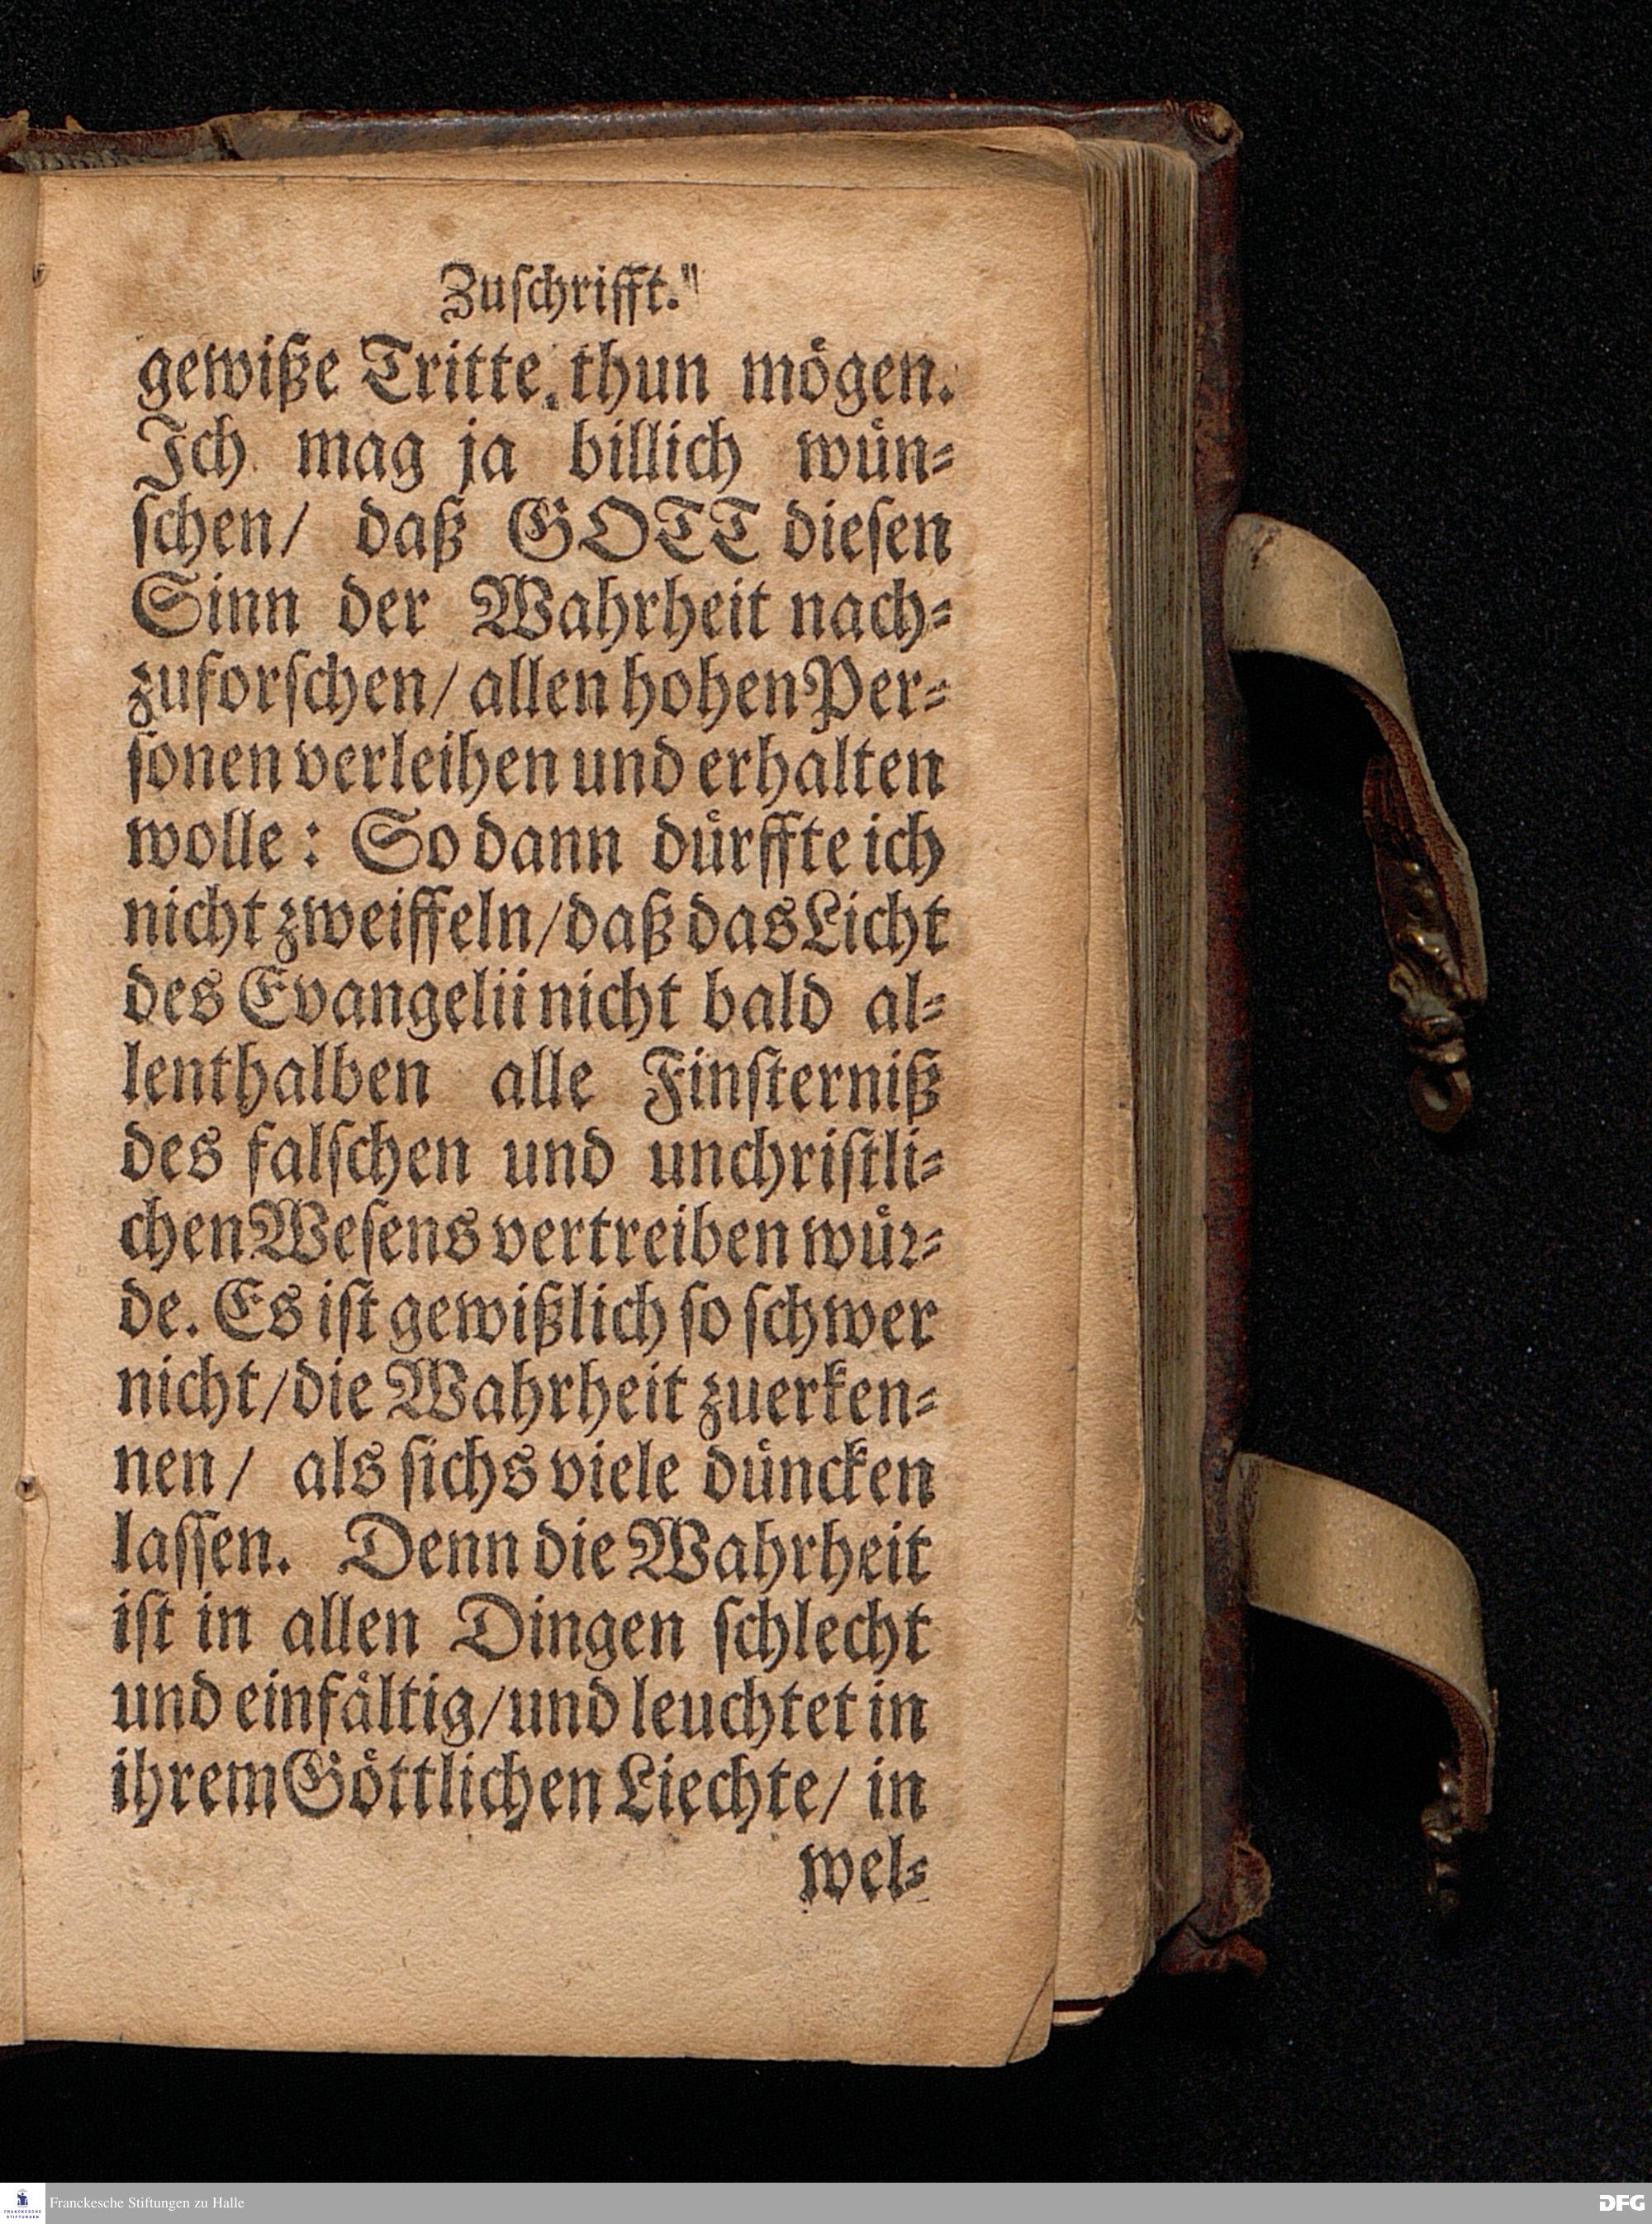 Zuſchrifft.
gewiße Tritte thun mögen.
Ich mag ja billich wün⸗
ſchen/ daß GOTT dieſen
Sinn der Wahrheit nach⸗
zuforſchen/ allen hohen Per⸗
ſonen verleihen und erhalten
wolle: So dann dürffte ich
nicht zweiffeln/ daß das Licht
des Evangelii nicht bald al⸗
lenthalben alle Finſterniß
des falſchen und unchriſtli⸗
chen Weſens vertreiben wür⸗
de. Es iſt gewißlich ſo ſchwer
nicht/ die Wahrheit zuerken⸗
nen/ als ſichs viele düncken
laſſen. Denn die Wahrheit
iſt in allen Dingen ſchlecht
und einfältig/ und leuchtet in
ihrem Göttlichen Liechte/ in
wel⸗
FRANCKESCHE
STIFTUNGEN
Franckesche Stiftungen zu Halle
DFG